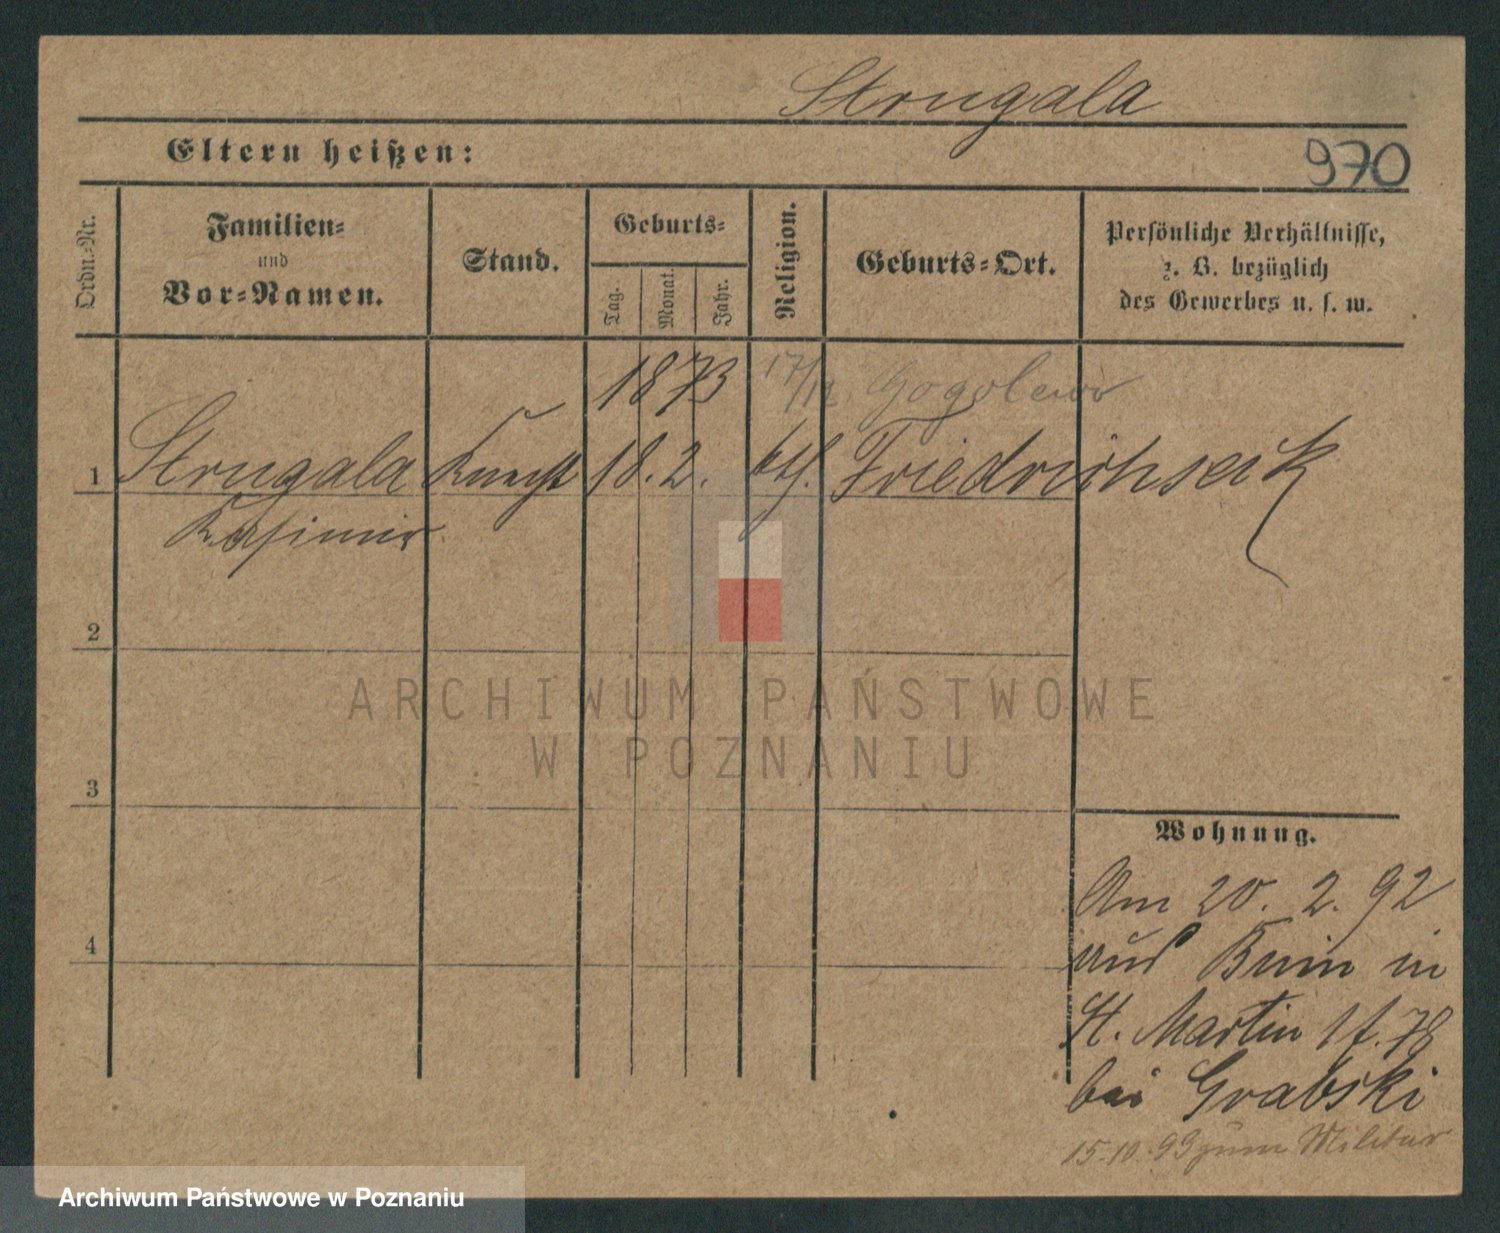 Strugala
Eltern heißen:
970
Ordn.-Nr.
Familien-
und
Vor-Namen.
Stand.
Geburts-
Tag.
Monat.
Jahr.
Religion.
Geburts-Ort.
Persönliche Verhältnisse,
z. B. bezüglich
des Gewerbes u. s. w.
1873 17/12 Gogolewo
1 Strugala Knecht 18. 2. kth.
Kasimir
2
3
4
ARCHIWUM PAŃSTWOWE
W POZNANIU
Wohnung.
Am 20. 2. 92
aus Bnin in
St. Martin 78
bei Grabski
15.10.93 zum Militär
Archiwum Państwowe w Poznaniu